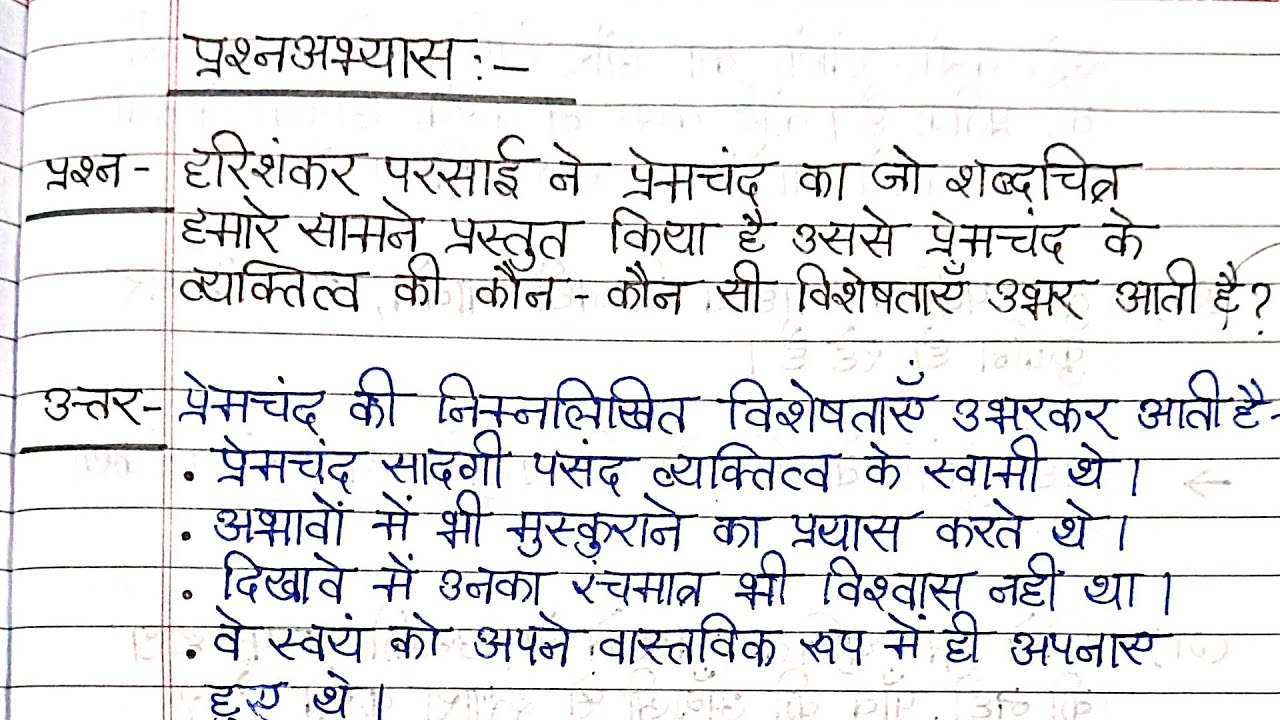 प्रश्नअभ्यास :–
प्रश्न - हरिशंकर परसाई ने प्रेमचंद का जो शब्दचित्र
हमारे सामने प्रस्तुत किया है उससे प्रेमचंद के
व्यक्तित्व की कौन - कौन सी विशेषताएँ उभर आती है?
उत्तर - प्रेमचंद की निम्नलिखित विशेषताएँ उभरकर आती है -
. प्रेमचंद सादगी पसंद व्यक्तित्व के स्वामी थे।
. अभावों में भी मुस्कुराने का प्रयास करते थे।
. दिखावे में उनका रंचमात्र भी विश्वास नही था।
. वे स्वयं को अपने वास्तविक रूप में ही अपनाए
हुए थे।